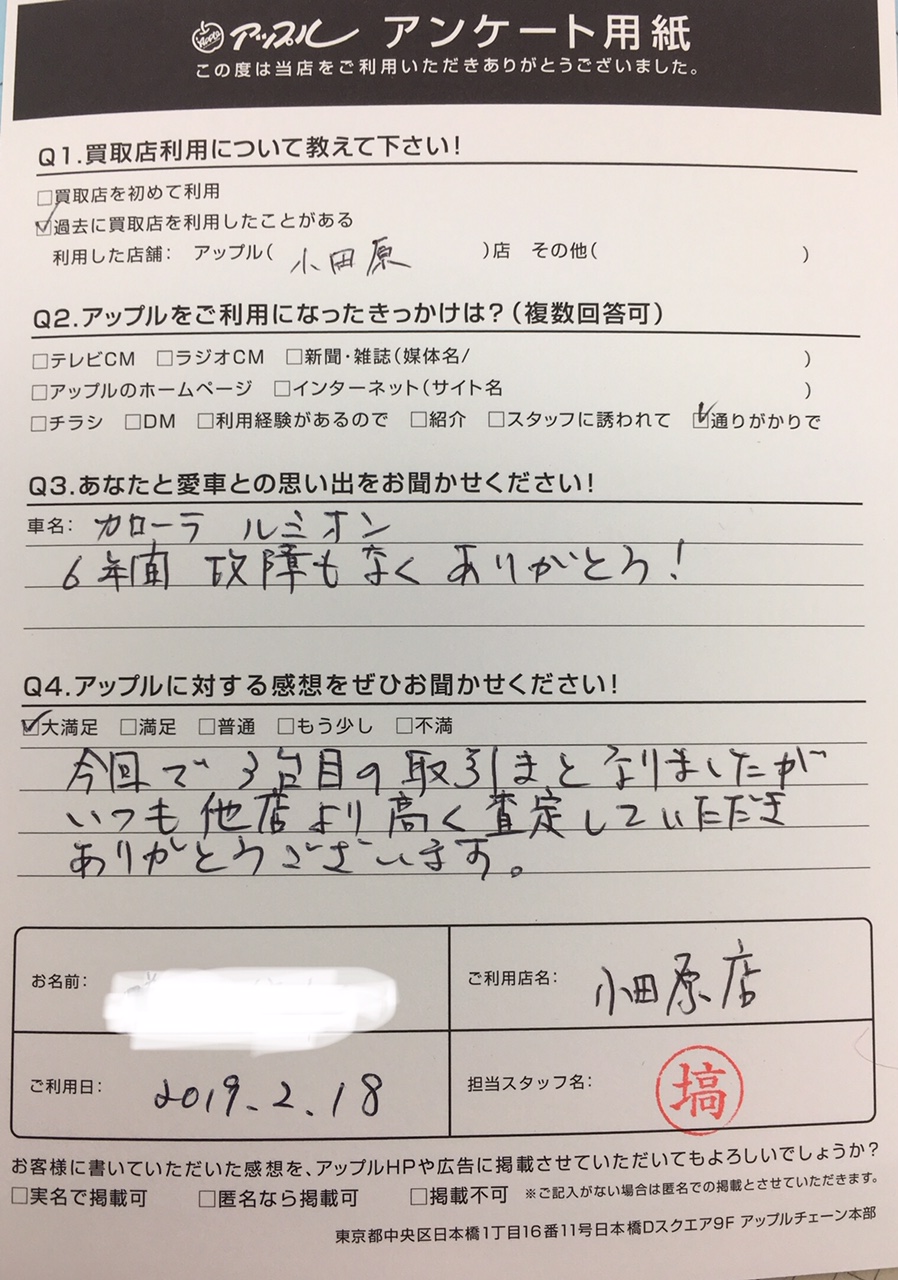 Apple アップル アンケート用紙
この度は当店をご利用いただきありがとうございました。
Q1.買取店利用について教えて下さい!
□買取店を初めて利用
☑過去に買取店を利用したことがある
利用した店舗: アップル( 小田原 )店 その他( )
Q2.アップルをご利用になったきっかけは?(複数回答可)
□テレビCM □ラジオCM □新聞・雑誌(媒体名/ )
□アップルのホームページ □インターネット(サイト名 )
□チラシ □DM □利用経験があるので □紹介 □スタッフに誘われて ☑通りがかりで
Q3.あなたと愛車との思い出をお聞かせください!
車名: カローラ ルミオン
6年間 故障もなく ありがとう!
Q4.アップルに対する感想をぜひお聞かせください!
☑大満足 □満足 □普通 □もう少し □不満
今回で3台目の取引まとなりましたが
いつも他店より高く査定していただき
ありがとうございます。
お名前:
ご利用店名: 小田原店
ご利用日: 2019.2.18
担当スタッフ名: 塙
お客様に書いていただいた感想を、アップルHPや広告に掲載させていただいてもよろしいでしょうか?
□実名で掲載可 □匿名なら掲載可 □掲載不可 ※ご記入がない場合は匿名での掲載とさせていただきます。
東京都中央区日本橋1丁目16番11号日本橋Dスクエア9F アップルチェーン本部